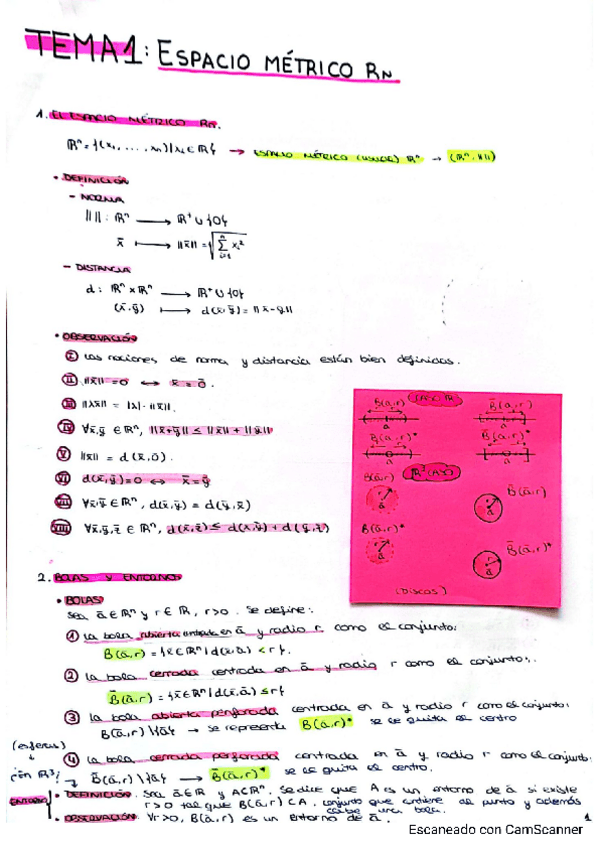 TEMA 1: ESPACIO MÉTRICO Rn
1. EL ESPACIO MÉTRICO Rn.
ℝⁿ = {(x₁, ..., xₙ) | xᵢ ∈ ℝ} → ESPACIO MÉTRICO (USUAL) ℝⁿ → (ℝⁿ, ‖ ‖)
• DEFINICIÓN
- NORMA
‖ ‖: ℝⁿ ⟶ ℝ⁺ ∪ {0}
x̄ ⟼ ‖x̄‖ = √(∑ᵢ₌₁ⁿ xᵢ²)
- DISTANCIA
d: ℝⁿ × ℝⁿ ⟶ ℝ⁺ ∪ {0}
(x̄, ȳ) ⟼ d(x̄, ȳ) = ‖x̄ - ȳ‖
• OBSERVACIÓN
I Las nociones de norma y distancia están bien definidas.
II ‖x̄‖ = 0 ⟷ x̄ = 0̄.
III ‖λx̄‖ = |λ| · ‖x̄‖.
IV ∀x̄, ȳ ∈ ℝⁿ, ‖x̄ + ȳ‖ ≤ ‖x̄‖ + ‖ȳ‖
V ‖x̄‖ = d(x̄, 0̄).
VI d(x̄, ȳ) = 0 ⟷ x̄ = ȳ
VII ∀x̄, ȳ ∈ ℝⁿ, d(x̄, ȳ) = d(ȳ, x̄)
VIII ∀x̄, ȳ, z̄ ∈ ℝⁿ, d(x̄, z̄) ≤ d(x̄, ȳ) + d(ȳ, z̄)
CASO ℝ
B(ā, r) B̄(ā, r)
a a
B(ā, r)* B̄(ā, r)*
a a
ℝ² CASO
B(ā, r) B̄(ā, r)
r ā r ā
B(ā, r)* B̄(ā, r)*
r ā r ā
(DISCOS)
2. BOLAS Y ENTORNOS
• BOLAS
Sea ā ∈ ℝⁿ y r ∈ ℝ, r > 0. Se define:
1 La bola abierta centrada en ā y radio r como el conjunto:
B(ā, r) = {x̄ ∈ ℝⁿ | d(x̄, ā) < r}.
2 La bola cerrada centrada en ā y radio r como el conjunto:
B̄(ā, r) = {x̄ ∈ ℝⁿ | d(x̄, ā) ≤ r}
3 La bola abierta perforada centrada en ā y radio r como el conjunto:
B(ā, r) \ {ā} → se representa B(ā, r)* se le quita el centro
(esferas)
4 La bola cerrada perforada centrada en ā y radio r como el conjunto:
¡en ℝ³! → B̄(ā, r) \ {ā} ⟶ B̄(ā, r)* se le quita el centro.
ENTORNO • DEFINICIÓN. Sea ā ∈ ℝ y A ⊂ ℝⁿ. Se dice que A es un entorno de ā si existe
r > 0 tal que B(ā, r) ⊂ A. conjunto que contiene al punto y además
cabe una bola.
• OBSERVACIÓN. ∀r > 0, B(ā, r) es un entorno de ā.
1
Escaneado con CamScanner